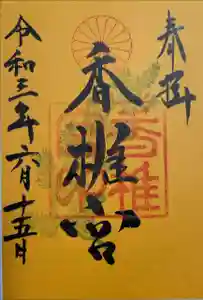 奉拝
香椎宮
令和三年六月十五日